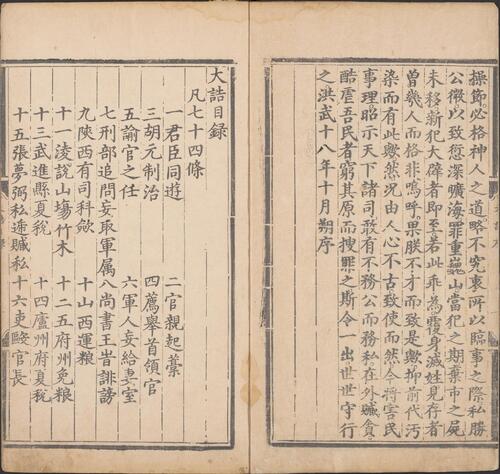 操節必格神人之道略不究衷所以臨事之際私勝
公微以致愆深曠海罪重巍山當犯之期棄市之屍
未移新犯大辟者即至若此乖為覆身滅姓見存者
曾幾人而格非嗚呼果朕不才而致是歟抑前代汚
染而有此歟然况由人心不古致使而然今將害民
事理昭示天下諸司敢有不務公而務私在外贓貪
酷虐吾民者窮其原而搜罪之斯令一出世世守行
之洪武十八年十月朔序
大誥目録
凡七十四條
一君臣同遊 二官親起藳
三胡元制治 四薦舉首領官
五諭官之任 六軍人妄給妻室
七刑部追問妄取軍属 八尚書王旹誹謗
九陝西有司科歛 十山西運粮
十一淩說山塲竹木 十二五府州免粮
十三武進縣夏稅 十四廬州府夏稅
十五張夢弼私遞贓私 十六吏毆官長